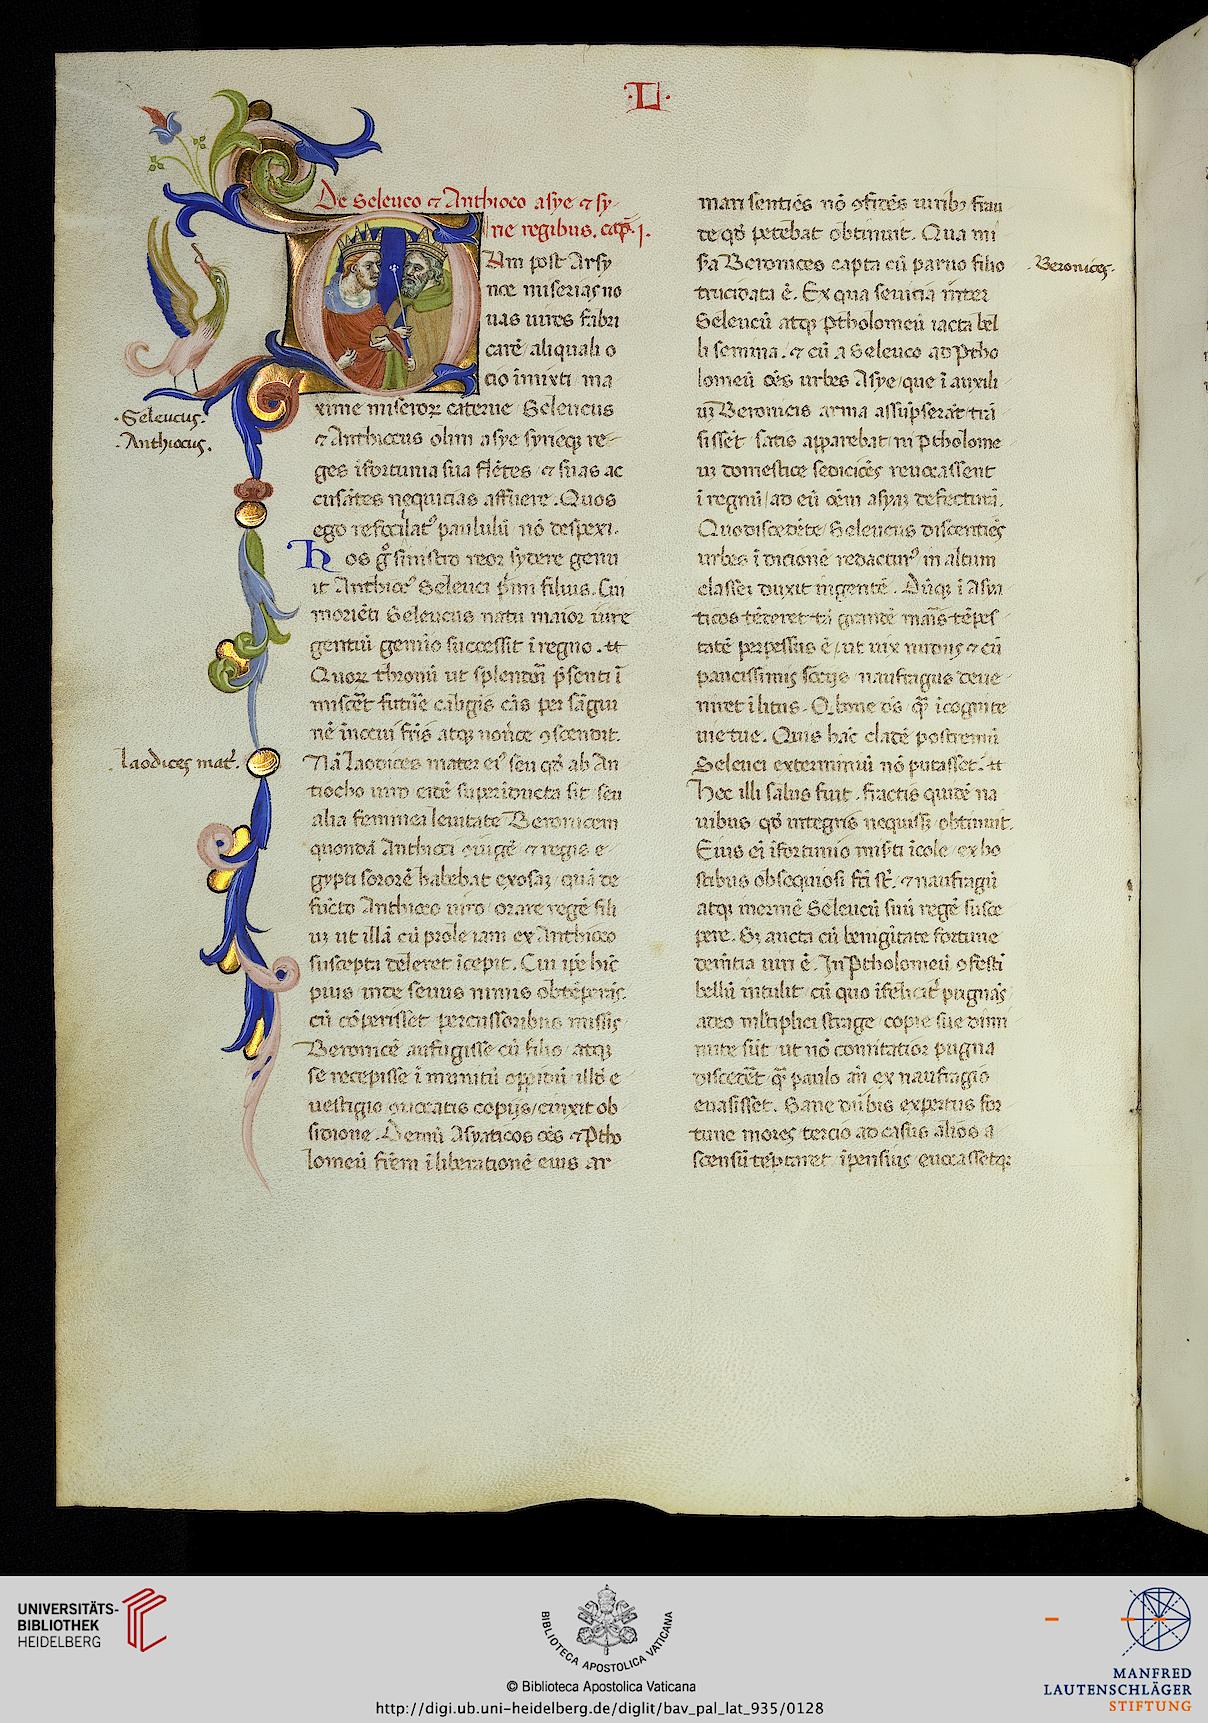 ·L·
De Seleuco ⁊ Anthioco asye ⁊ sy-
rie regibus. cap̃. j.
Am post Arsy
noe miserias no
uas uires fabri
carẽ aliquali o
cio ĩmixti ma
xime miseroꝝ caterue Seleucus
⁊ Anthiocus olim asye syrieqꝫ re-
ges ĩfortunia sua flẽtes ⁊ suas ac
cusãtes nequicias affuere. Quos
ego refocilatꝰ paululũ nõ despexi.
Hos gͦ sinistro reor sydere genu
it Anthiocꝰ Seleuci p̃mi filius. Cui
moriẽti Seleucus natu maior iure
gentiũ genitio successit ĩ regno. ⁊t
Quoꝝ thronũ ut splendorẽ p̃senti ĩ
misceret future caligĩs cãs per sãgui
nẽ ĩnocui fr̃is atqꝫ nouerce ꝯscendit.
Nã Laodices mater eiꝰ seu qd̾ ab An
tiocho uiro eidẽ superiducta sit seu
alia feminea leuitate Beronicem
quondã Anthioci ꝯiugẽ ⁊ regis e
gypti sororẽ habebat exosaꝫ quã de
fũcto Anthioco uiro orare regẽ fili
uꝫ ut illã cũ prole iam ex Anthioco
suscepta deleret ĩcepit. Cui ip̃e hĩc
pius inde seuus nimis obtẽperãs
cũ cõperisset percussoribus missis
Beronicẽ aufugisse cũ filio atqꝫ
se recepisse ĩ munitũ oppidũ illd̾ e
uestigio ꝯuocatis copijs cinxit ob
sidione. Demũ Asyaticos oẽs ⁊ Ptho
lomeũ fr̃em ĩ liberationẽ eius ar
mari sentiẽs nõ ꝯfidẽs uiribꝫ frau
de qd̾ petebat obtinuit. Qua mi
sera Beronices capta cũ paruo filio
trucidata ẽ. Ex qua seuicia inter
Seleucũ atqꝫ Ptholomeũ iacta bel
li semina. ⁊ cũ a Seleuco ad Ptho
lomeũ oẽs urbes Asye que ĩ auxili
uꝫ Beronicis arma assũpserãt trã
sissẽt satis apparebat ni Ptholome
uꝫ domestice sediciões reuocassent
ĩ regnũ ad eũ oẽm asyaꝫ defecturã.
Quo discedẽte Seleucus discentiẽs
urbes ĩ dicionẽ redacturꝰ in altum
classeꝫ duxit ingentẽ. Dũqꝫ ĩ Asya
ticos tẽderet tã grandẽ maris tẽpes
tatẽ perpessus ẽ ut uix nudus ⁊ cũ
paucissimis socijs naufragus deue
niret ĩ litus. O bone ds̃ q̃ ĩcognite
uie tue. Quis hãc cladẽ postremũ
Seleuci exterminiũ nõ putasset. ⁊t
Hec illi salus fuit. fractis quidẽ na
uibus qd̾ integris nequissꝫ obtinuit.
Eius ei ĩfortunio misti ĩcole ex ho
stibus obsequiosi fc̃i sũt ⁊ naufragũ
atqꝫ inermẽ Seleucũ suũ regẽ susce
pere. Sꝫ aucta cũ benignitate fortune
demẽtia uiri ẽ. In Ptholomeũ ꝯfestĩ
bellũ intulit cũ quo ĩfelicit̾ pugnãs
adeo ml̾tiplici strage copie sue dimi
nute sũt ut nõ comitatior pugna
discederet q̃ paulo añ ex naufragio
euasisset. Sane dũ bis expertus for
tune mores tercio ad casus alios a
scensũ tẽptaret ĩpensius euocassetqꝫ
·Seleucus·
·Anthiocus.
·Laodices mat̾.
·Beronices·
UNIVERSITÄTS-
BIBLIOTHEK
HEIDELBERG
BIBLIOTECA APOSTOLICA VATICANA
© Biblioteca Apostolica Vaticana
http://digi.ub.uni-heidelberg.de/diglit/bav_pal_lat_935/0128
MANFRED
LAUTENSCHLÄGER
STIFTUNG